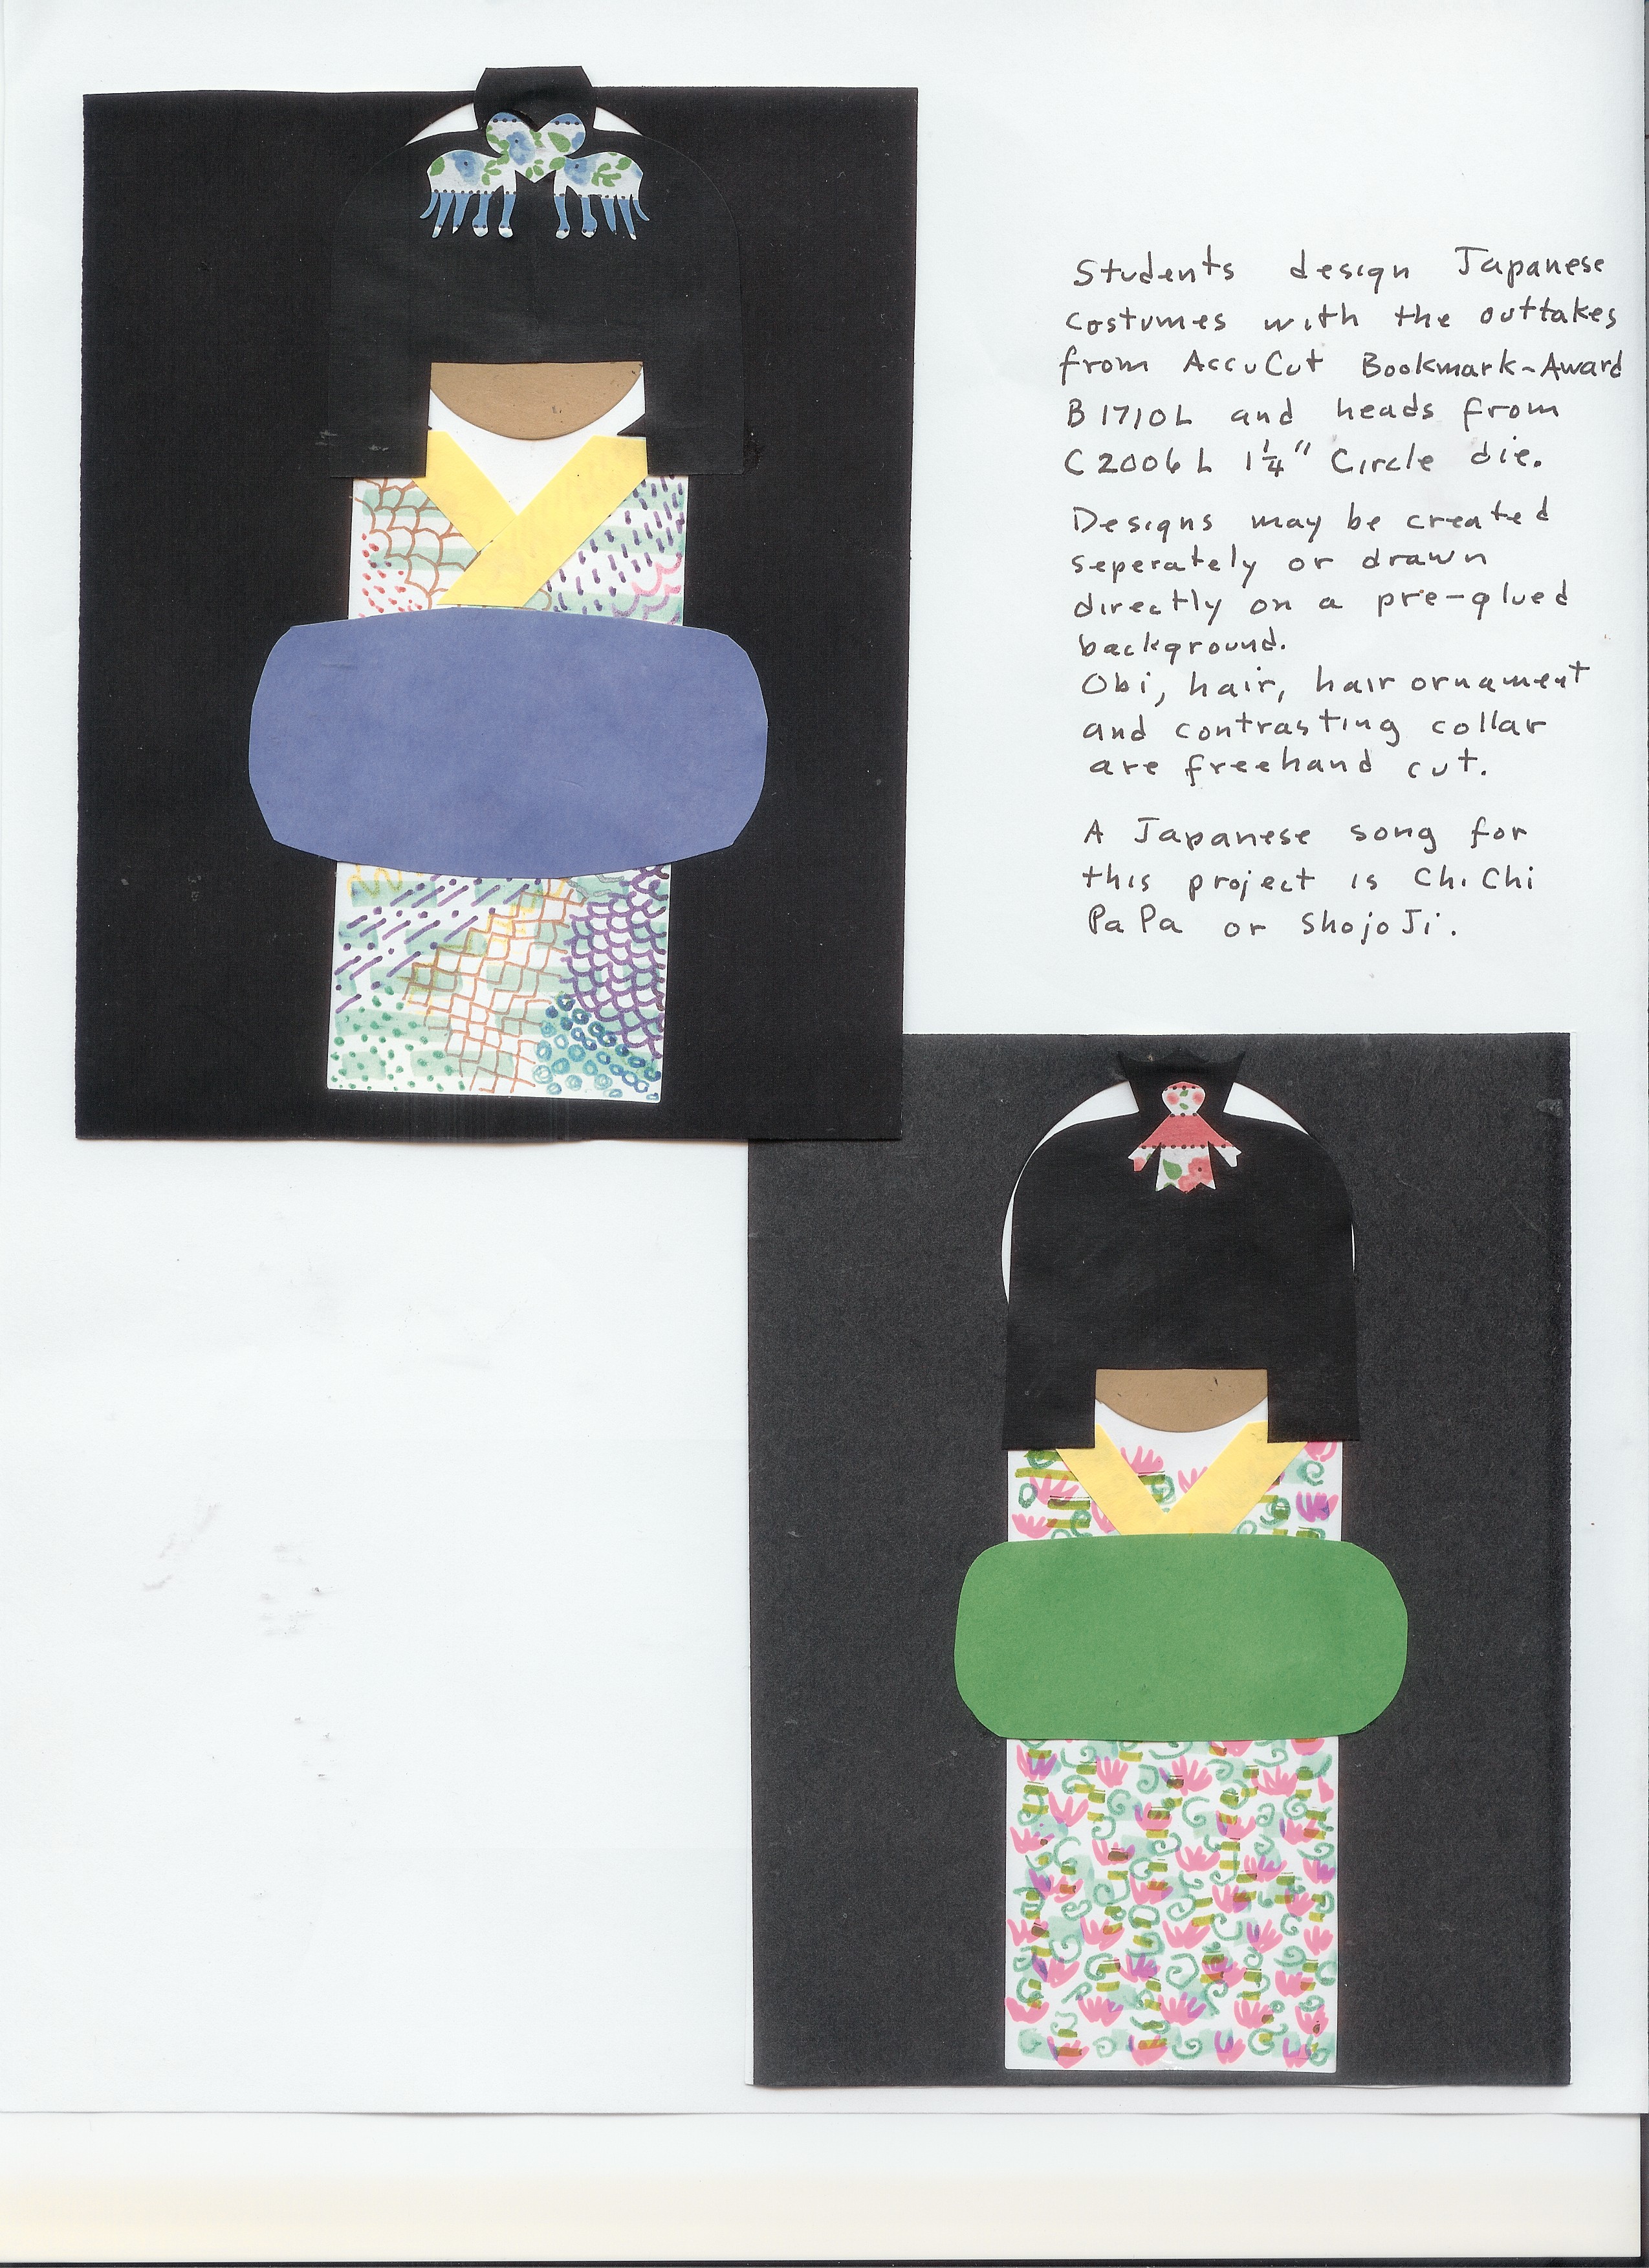 Students design Japanese
costumes with the outtakes
from AccuCut Bookmark-Award
B1710L and heads from
C2006L 1¼" Circle die.
Designs may be created
seperately or drawn
directly on a pre-glued
background.
Obi, hair, hair ornament
and contrasting collar
are freehand cut.
A Japanese song for
this project is Chi Chi
PaPa or ShojoJi.